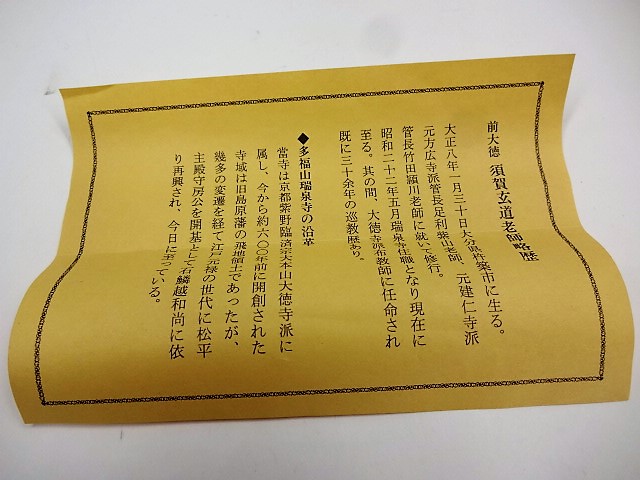 前大徳 須賀玄道老師略歴
大正八年一月三十日大分県杵築市に生る。
元方広寺派管長足利紫山老師、元建仁寺派
管長竹田頴川老師に就いて修行。
昭和二十二年五月瑞泉寺住職となり現在に
至る。其の間、大徳寺派布教師に任命され
既に三十余年の巡教歴あり。
◆多福山瑞泉寺の沿革
當寺は京都紫野臨済宗大本山大徳寺派に
属し、今から約六〇〇年前に開創された
寺域は旧島原藩の飛地領土であったが、
幾多の変遷を経て江戸元禄の世代に松平
主殿守房公を開基として石鱗越和尚に依
り再興され、今日に至っている。